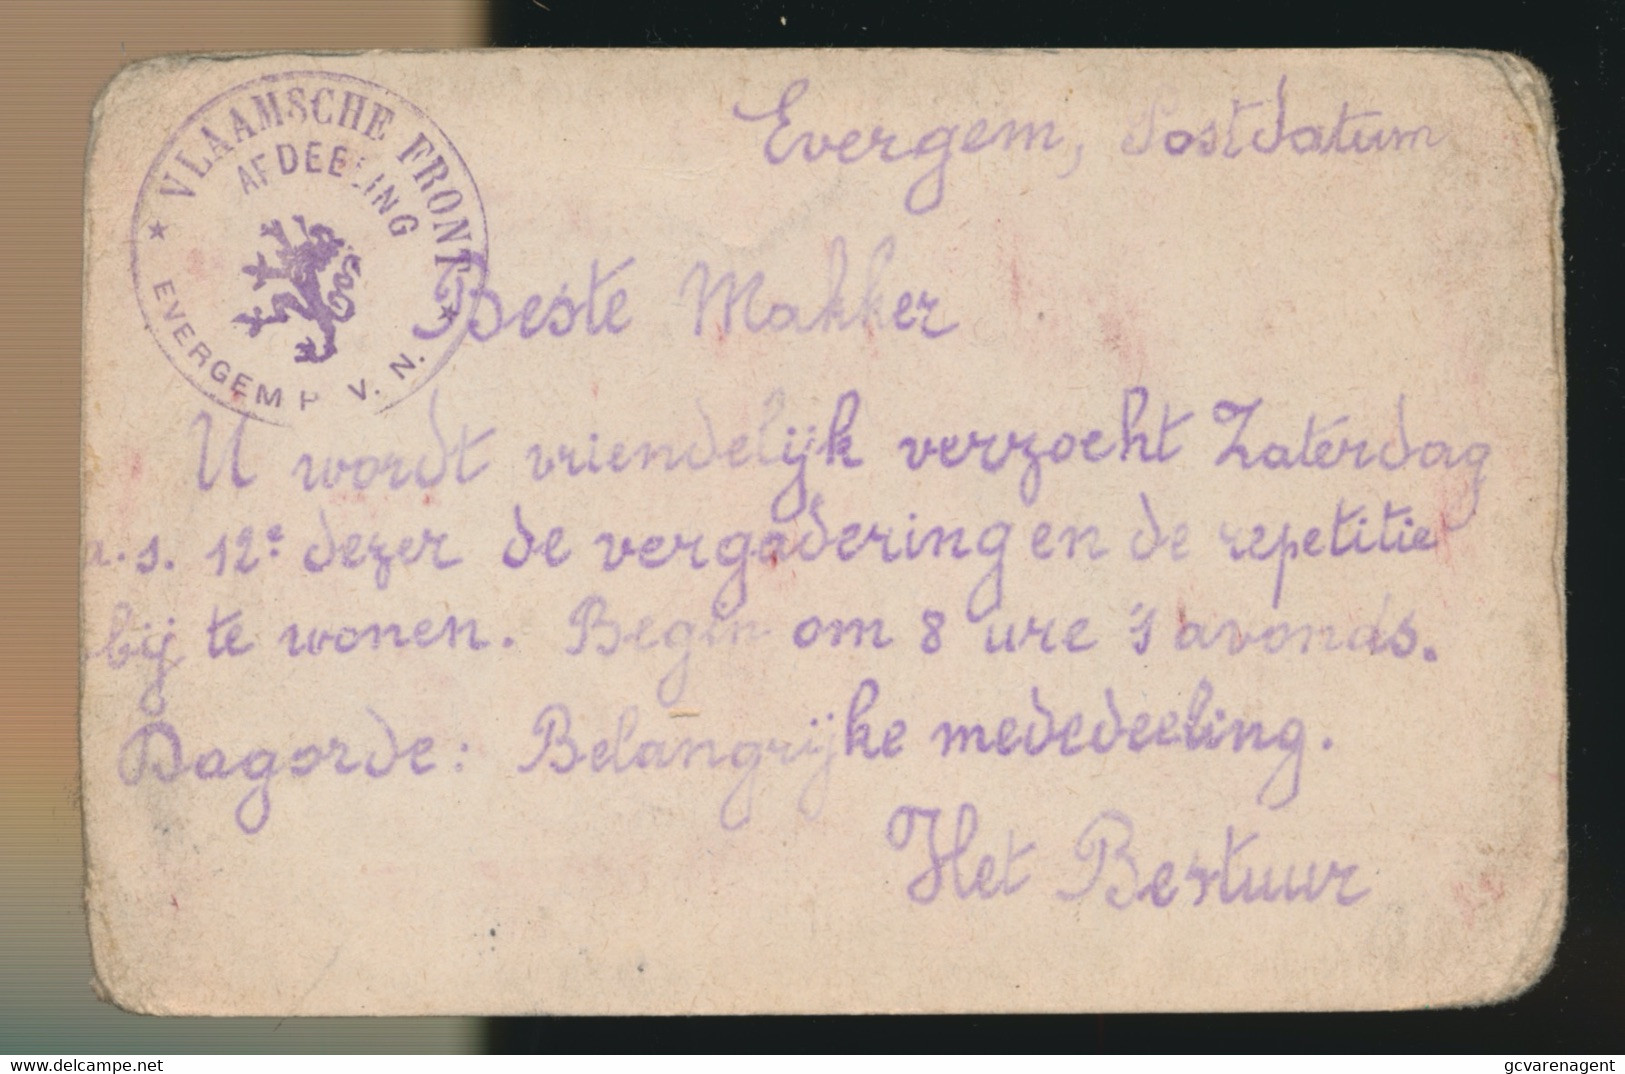 VLAAMSCHE FRONT
AFDEELING
EVERGEM P. V. N.
Evergem, Postdatum
Beste Makker
U wordt vriendelijk verzocht Zaterdag
a.s. 12e dezer de vergadering en de repetitie
bij te wonen. Begin om 8 ure 's avonds.
Dagorde: Belangrijke mededeeling.
Het Bestuur
delcampe.net
gcvarenagent